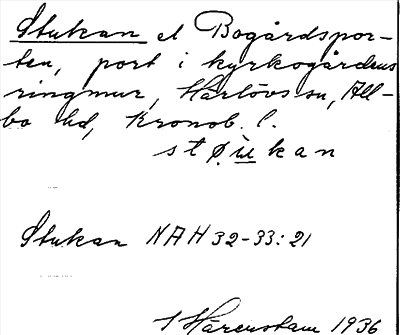 Stukan el Bogårdspor-
ten, port i kyrkogårdens
ringmur, Härlövs sn, All-
bo hd, Kronob. l.
Stukan NAH 32-33:21
S Härenstam 1936